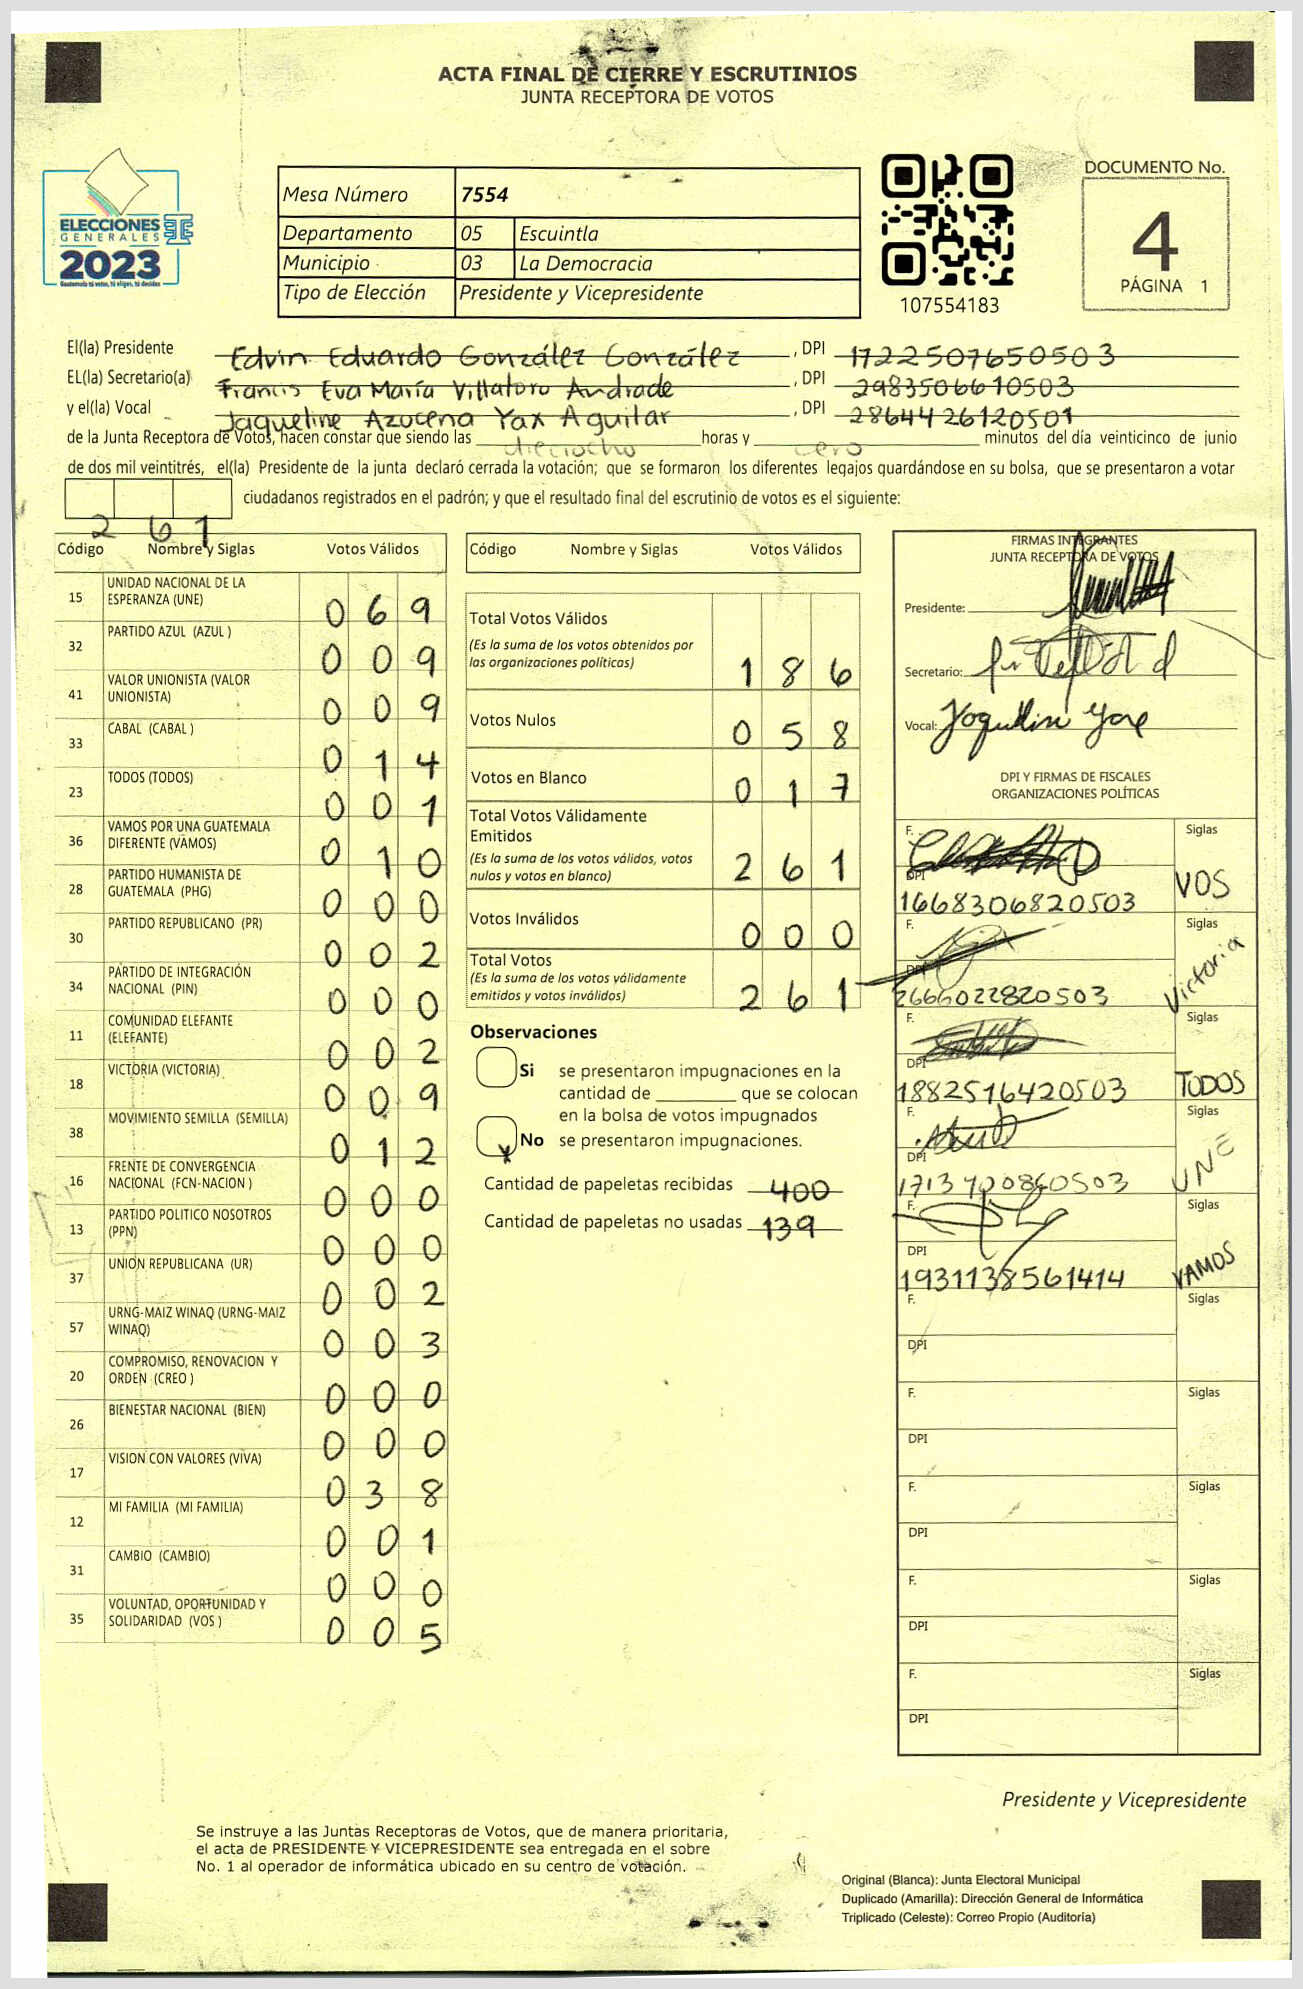 ACTA FINAL DE CIERRE Y ESCRUTINIOS
JUNTA RECEPTORA DE VOTOS
ELECCIONES
GENERALES
2023
Guatemala tú votas, tú eliges, tú decides
Mesa Número 7554
Departamento 05 Escuintla
Municipio 03 La Democracia
Tipo de Elección Presidente y Vicepresidente
107554183
DOCUMENTO No.
4
PÁGINA 1
El(la) Presidente Edvin Eduardo González González, DPI 1722507650503
EL(la) Secretario(a) Francis Eva María Villatoro Andrade, DPI 2983506610503
y el(la) Vocal Jaqueline Azucena Yax Aguilar, DPI 2864426120501
de la Junta Receptora de Votos, hacen constar que siendo las dieciocho horas y cero minutos del día veinticinco de junio
de dos mil veintitrés, el(la) Presidente de la junta declaró cerrada la votación; que se formaron los diferentes legajos quardándose en su bolsa, que se presentaron a votar
261 ciudadanos registrados en el padrón; y que el resultado final del escrutinio de votos es el siguiente:
Código Nombre y Siglas Votos Válidos
15 UNIDAD NACIONAL DE LA ESPERANZA (UNE) 069
32 PARTIDO AZUL (AZUL ) 009
41 VALOR UNIONISTA (VALOR UNIONISTA) 009
33 CABAL (CABAL ) 014
23 TODOS (TODOS) 001
36 VAMOS POR UNA GUATEMALA DIFERENTE (VAMOS) 010
28 PARTIDO HUMANISTA DE GUATEMALA (PHG) 000
30 PARTIDO REPUBLICANO (PR) 002
34 PARTIDO DE INTEGRACIÓN NACIONAL (PIN) 000
11 COMUNIDAD ELEFANTE (ELEFANTE) 002
18 VICTORIA (VICTORIA) 009
38 MOVIMIENTO SEMILLA (SEMILLA) 012
16 FRENTE DE CONVERGENCIA NACIONAL (FCN-NACION ) 000
13 PARTIDO POLITICO NOSOTROS (PPN) 000
37 UNION REPUBLICANA (UR) 002
57 URNG-MAIZ WINAQ (URNG-MAIZ WINAQ) 003
20 COMPROMISO, RENOVACION Y ORDEN (CREO ) 000
26 BIENESTAR NACIONAL (BIEN) 000
17 VISION CON VALORES (VIVA) 038
12 MI FAMILIA (MI FAMILIA) 001
31 CAMBIO (CAMBIO) 000
35 VOLUNTAD, OPORTUNIDAD Y SOLIDARIDAD (VOS ) 005
Código Nombre y Siglas Votos Válidos
Total Votos Válidos
(Es la suma de los votos obtenidos por
las organizaciones políticas) 186
Votos Nulos 058
Votos en Blanco 017
Total Votos Válidamente
Emitidos
(Es la suma de los votos válidos, votos
nulos y votos en blanco) 261
Votos Inválidos 000
Total Votos
(Es la suma de los votos válidamente
emitidos y votos inválidos) 261
Observaciones
Si se presentaron impugnaciones en la
cantidad de ________ que se colocan
en la bolsa de votos impugnados
x No se presentaron impugnaciones.
Cantidad de papeletas recibidas 400
Cantidad de papeletas no usadas 139
FIRMAS INTEGRANTES
JUNTA RECEPTORA DE VOTOS
Presidente:
Secretario:
Vocal:
DPI Y FIRMAS DE FISCALES
ORGANIZACIONES POLÍTICAS
F. Siglas
DPI 1668306820503 VOS
F. Siglas
DPI 2666022820503 Victoria
F. Siglas
DPI 1882516420503 TODOS
F. Siglas
DPI 1713400860503 UNE
F. Siglas
DPI 1931138561414 VAMOS
F. Siglas
DPI
F. Siglas
DPI
F. Siglas
DPI
F. Siglas
DPI
F. Siglas
DPI
Presidente y Vicepresidente
Se instruye a las Juntas Receptoras de Votos, que de manera prioritaria,
el acta de PRESIDENTE Y VICEPRESIDENTE sea entregada en el sobre
No. 1 al operador de informática ubicado en su centro de votación.
Original (Blanca): Junta Electoral Municipal
Duplicado (Amarilla): Dirección General de Informática
Triplicado (Celeste): Correo Propio (Auditoría)